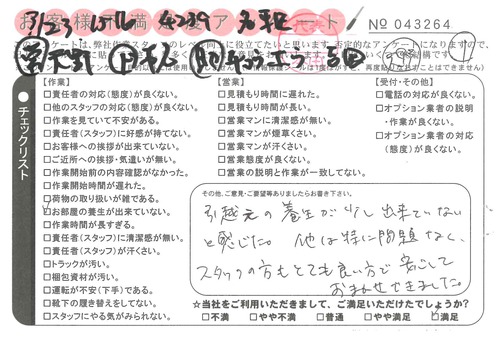 お客様満足度アンケート
№ 043264
チェックリスト
【作業】
□責任者の対応(態度)が良くない。
□他のスタッフの対応(態度)が良くない。
□作業を見ていて不安がある。
□責任者(スタッフ)に好感が持てない。
□お客様への挨拶が出来ていない。
□ご近所への挨拶・気遣いが無い。
□作業開始前の内容確認がなかった。
□作業開始時間が遅れた。
□荷物の取り扱いが雑である。
□お部屋の養生が出来ていない。
□作業時間が長すぎる。
□責任者(スタッフ)に清潔感が無い。
□責任者(スタッフ)が汗くさい。
□トラックが汚い。
□梱包資材が汚い。
□運転が不安(下手)である。
□靴下の履き替えをしてない。
□スタッフにやる気がみられない。
【営業】
□見積もり時間に遅れた。
□見積もり時間が長い。
□営業マンに清潔感が無い。
□営業マンが煙草くさい。
□営業マンが汗くさい。
□営業態度が良くない。
□営業の説明と作業が一致してない。
【受付・その他】
□電話の対応が良くない。
□オプション業者の説明・作業が良くない。
□オプション業者の対応(態度)が良くない。
その他、ご意見・ご要望等ありましたらお書き下さい。
引越元の養生が少し出来ていない
と感じた。他は特に問題なく、
スタッフの方もとても良い方で安心して
おまかせできました。
☆当社をご利用いただきまして、ご満足いただけたでしょうか?
□不満 □やや不満 □普通 □やや満足 □満足